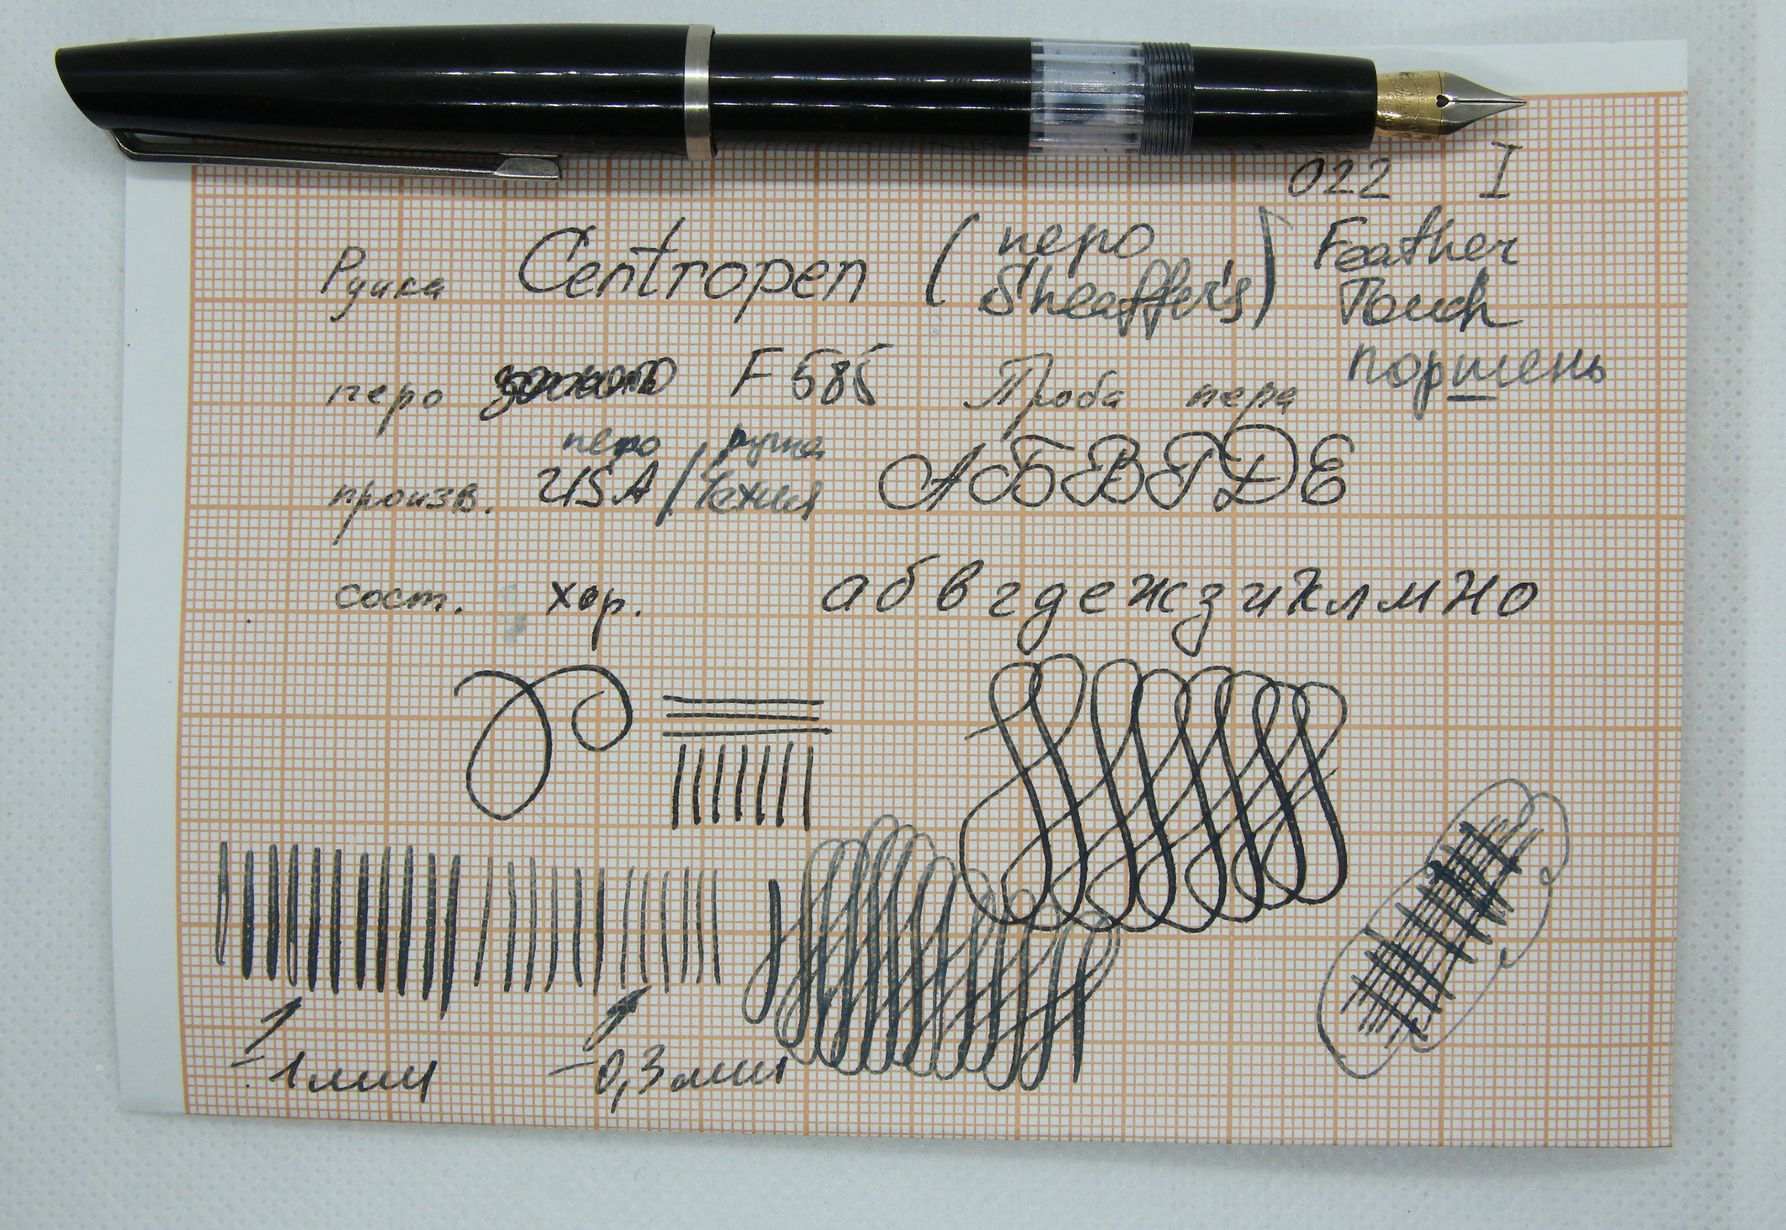 022 I
Ручка Centropen (перо Sheaffer's) Feather Touch
поршень
перо F 585 Проба пера
перо ручка
произв. USA / Чехия АБВГДЕ
сост. хор. абвгдежзиклмно
1 мм 0,3 мм